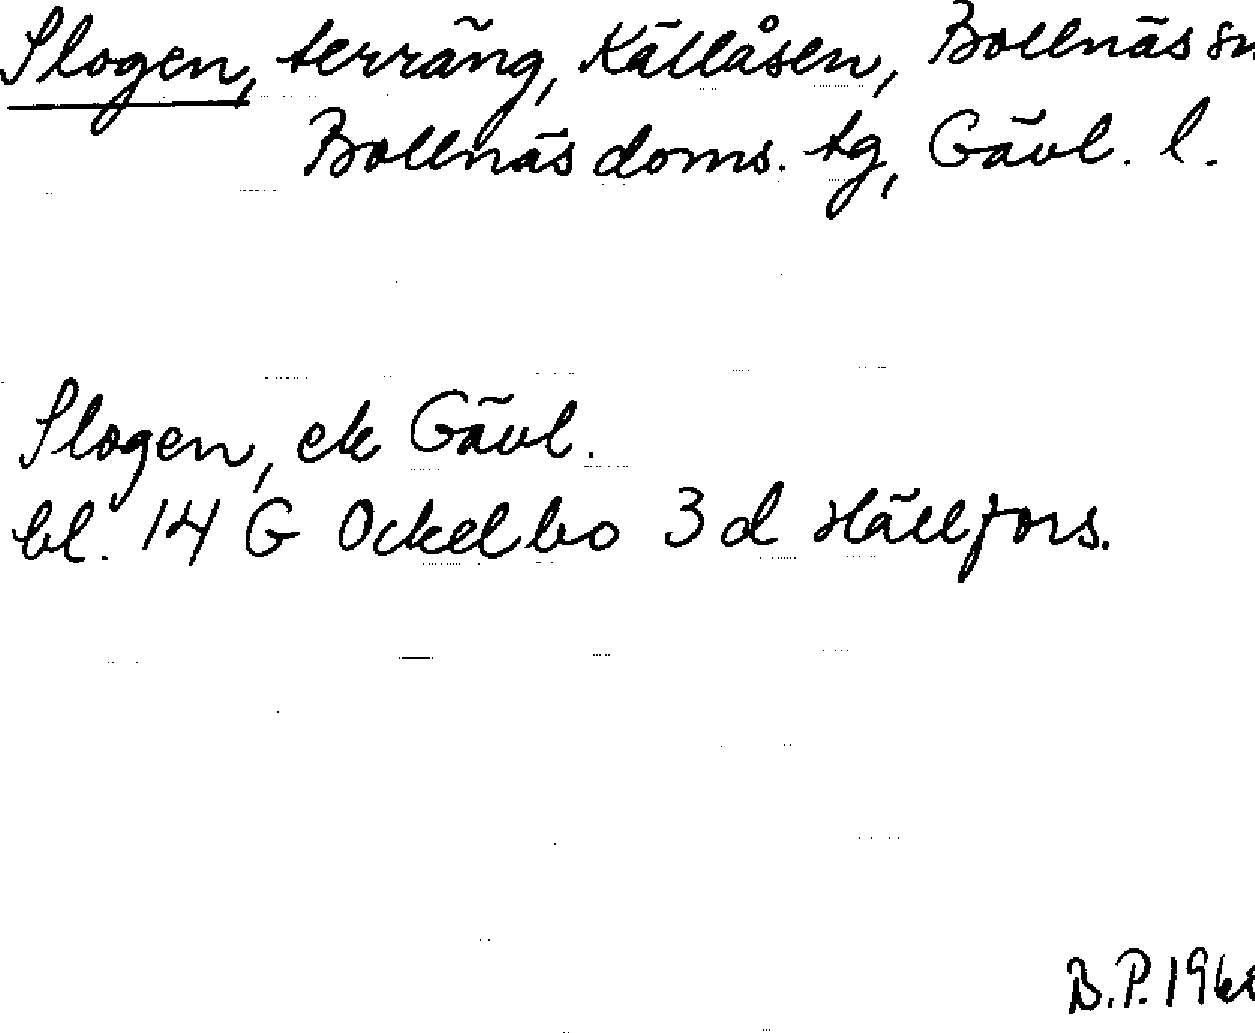 Slogen, terräng, Källåsen, Bollnäs sn
Bollnäs doms. tg, Gävl. l.
Slogen, ek Gävl.
bl. 14 G Ockelbo 3 d Hällfors.
B.P. 1968